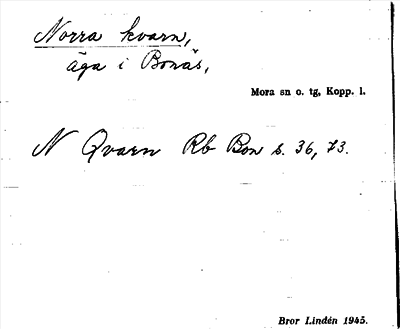 Norra kvarn,
äga i Bonäs,
Mora sn o. tg, Kopp. l.
N Qvarn Rb Bon s. 36, 73.
Bror Lindén 1945.